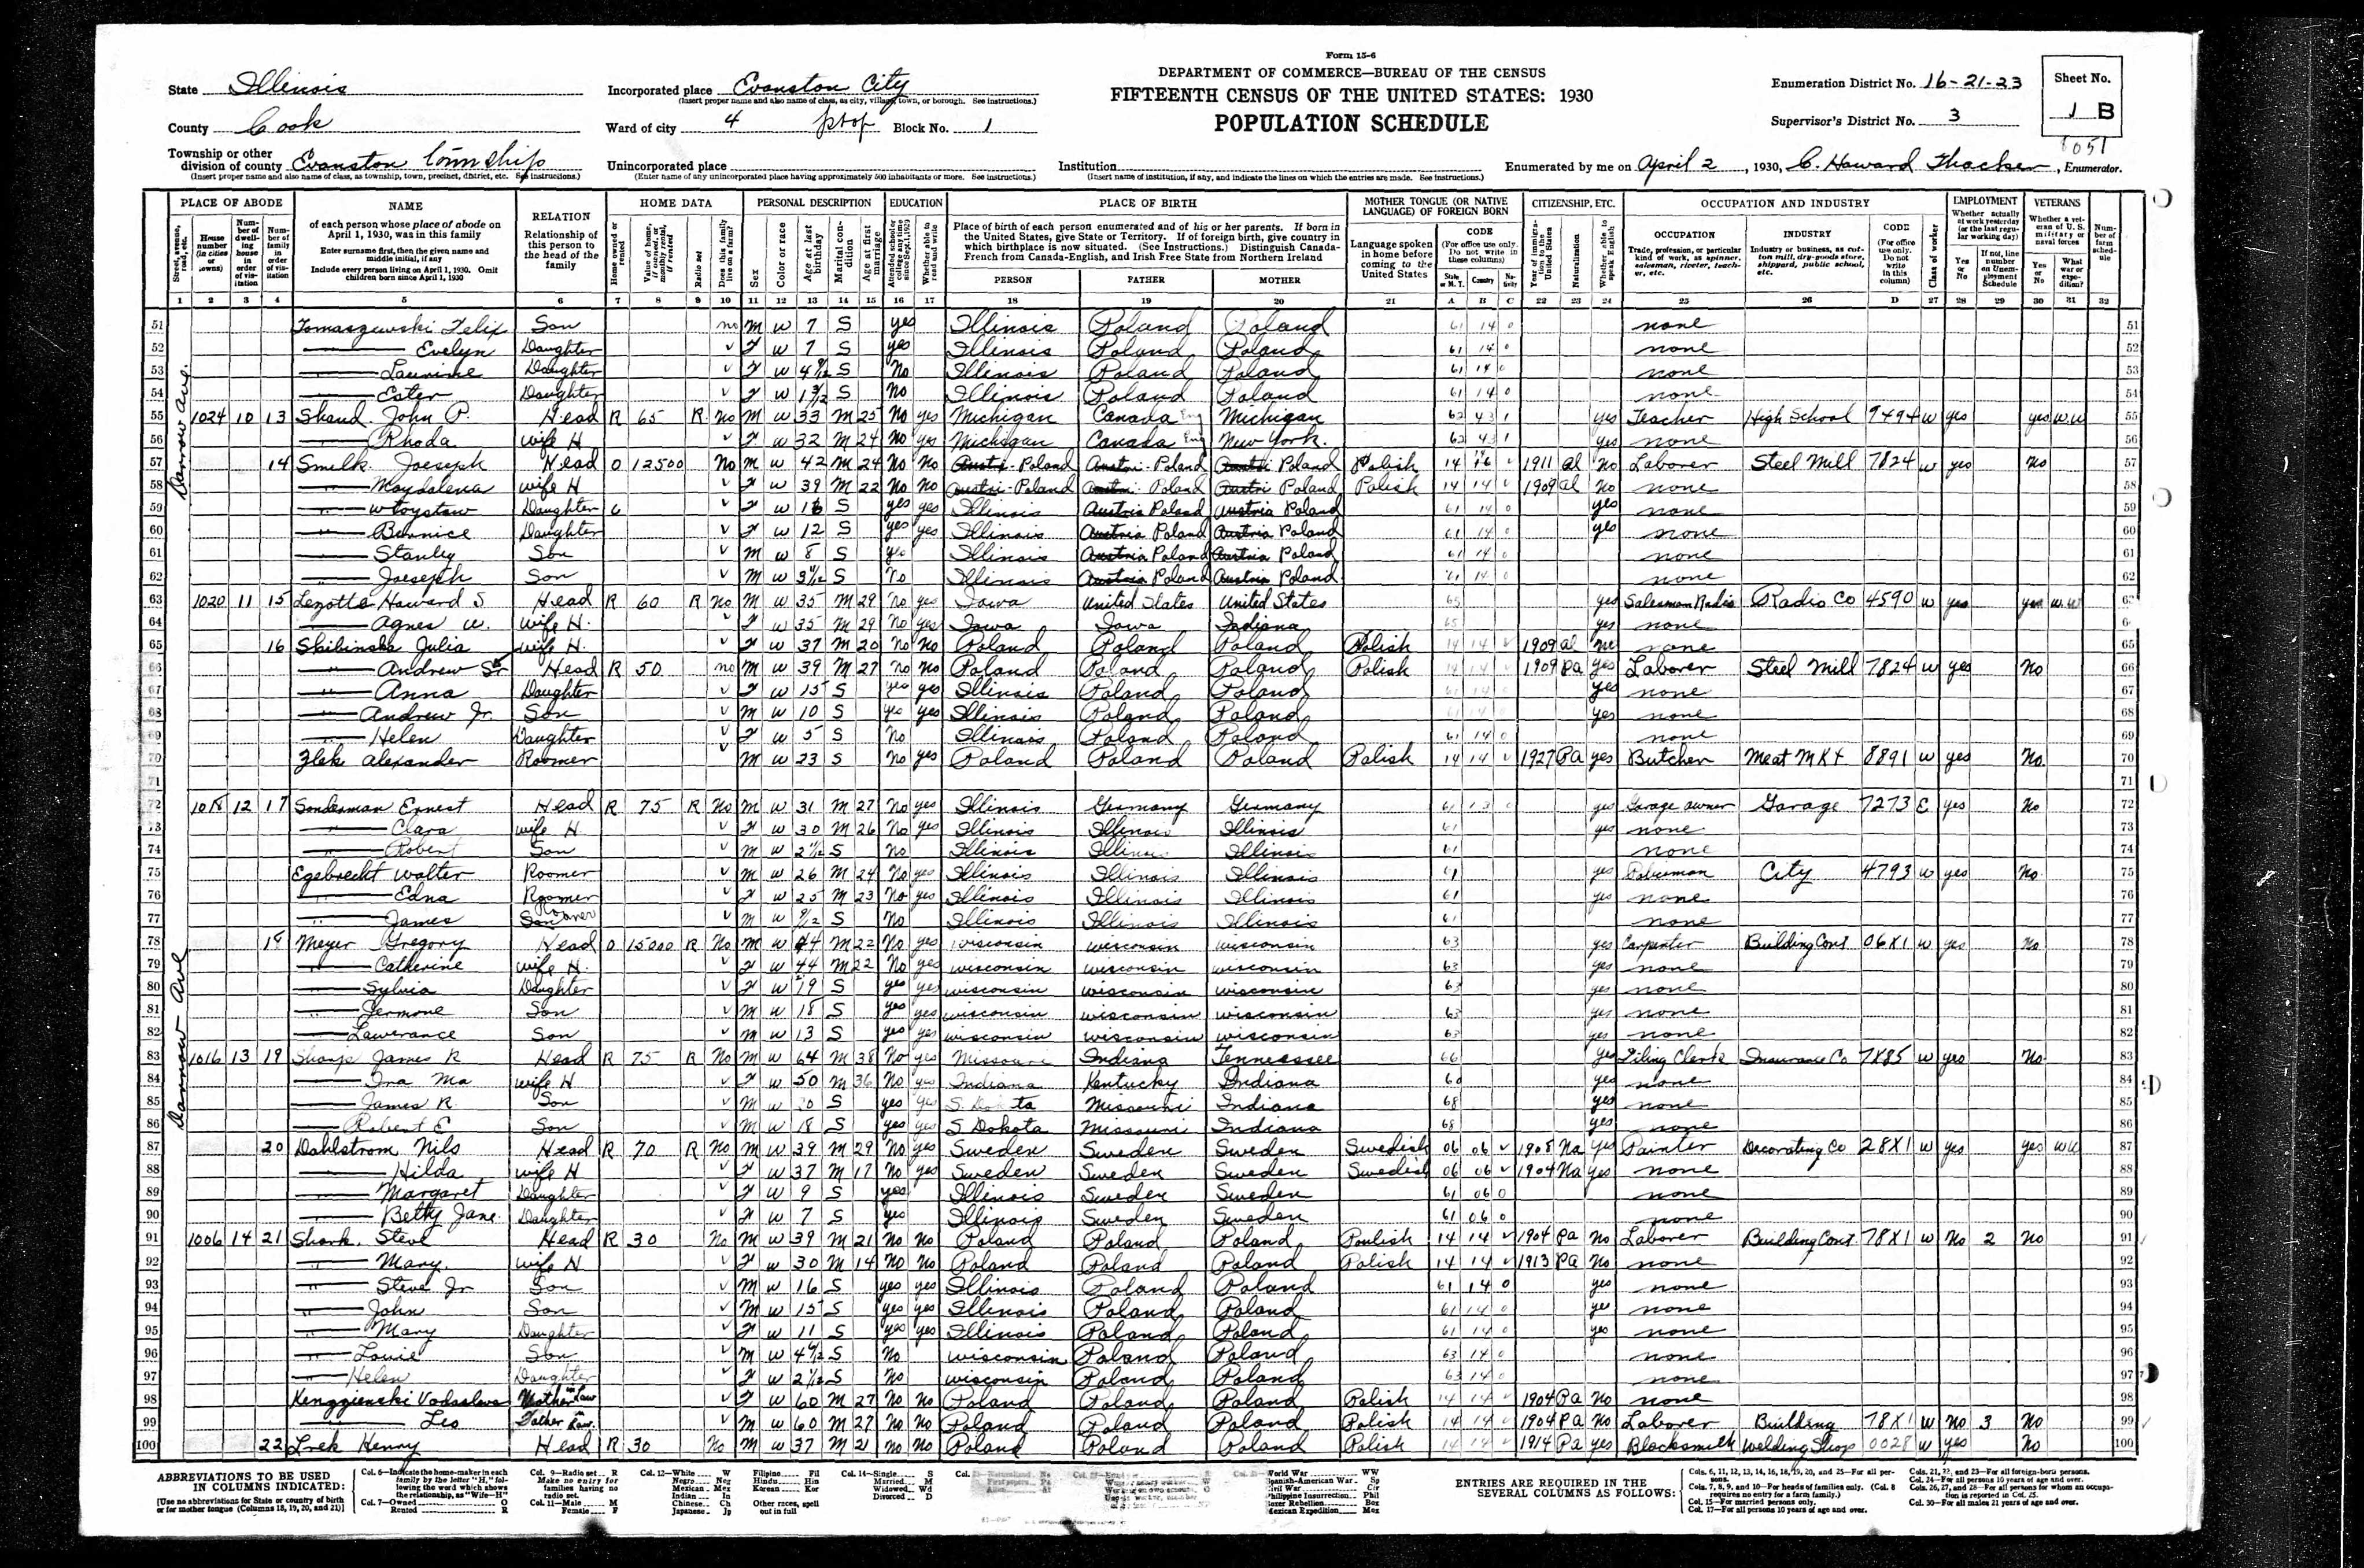 Form 15-6
DEPARTMENT OF COMMERCE—BUREAU OF THE CENSUS
FIFTEENTH CENSUS OF THE UNITED STATES: 1930
POPULATION SCHEDULE
State Illinois
County Cook
Township or other division of county Evanston Township
(Insert proper name and also name of class, as township, town, precinct, district, etc. See instructions.)
Incorporated place Evanston City
(Insert proper name and also name of class, as city, village, town, or borough. See instructions.)
Ward of city 4 Block No. 1
Unincorporated place
(Enter name of any unincorporated place having approximately 500 inhabitants or more. See instructions.)
Institution
(Insert name of institution, if any, and indicate the lines on which the entries are made. See instructions.)
Enumeration District No. 16-21-23
Supervisor's District No. 3
Sheet No. 1 B
Enumerated by me on April 2, 1930, C. Howard Thacker, Enumerator.
PLACE OF ABODE NAME RELATION HOME DATA PERSONAL DESCRIPTION EDUCATION PLACE OF BIRTH MOTHER TONGUE (OR NATIVE LANGUAGE) OF FOREIGN BORN CITIZENSHIP, ETC. OCCUPATION AND INDUSTRY EMPLOYMENT VETERANS
of each person whose place of abode on April 1, 1930, was in this family
Enter surname first, then the given name and middle initial, if any
Include every person living on April 1, 1930. Omit children born since April 1, 1930
Relationship of this person to the head of the family
Place of birth of each person enumerated and of his or her parents. If born in the United States, give State or Territory. If of foreign birth, give country in which birthplace is now situated. (See Instructions.) Distinguish Canada-French from Canada-English, and Irish Free State from Northern Ireland
PERSON FATHER MOTHER
Language spoken in home before coming to the United States
OCCUPATION INDUSTRY CODE
51 Tomaszewski Felix Son no M W 7 S yes Illinois Poland Poland 61 14 0 none 51
52 Evelyn Daughter F W 7 S yes Illinois Poland Poland 61 14 0 none 52
53 Daughter F W S No Illinois Poland Poland 61 14 0 none 53
54 Ester Daughter F W S No Illinois Poland Poland 61 14 0 none 54
55 1024 10 13 Shand John P. Head R 65 R No M W 33 M 25 No yes Michigan Canada Eng Michigan 62 43 1 yes Teacher High School 9494 W yes yes WW 55
56 Rhoda Wife H F W 32 M 24 No yes Michigan Canada Eng New York 62 43 1 yes none 56
57 14 Smelk Joeseph Head O 12500 No M W 42 M 24 No No Poland Poland Poland Polish 14 1911 al No Laborer Steel Mill 7824 W yes No 57
58 Magdalena Wife H F W 39 M 22 No No Poland Poland Poland Polish 14 14 V 1909 al No none 58
59 Daughter F W 16 S yes yes Illinois Poland Poland 61 14 0 yes none 59
60 Bernice Daughter F W 12 S yes yes Illinois Poland Poland 61 14 0 yes none 60
61 Stanley Son M W 8 S yes Illinois Poland Poland 61 14 0 none 61
62 Joeseph Son M W S no Illinois Poland Poland 61 14 0 none 62
63 1020 11 15 Lezotte Howard S Head R 60 R No M W 35 M 29 No yes Iowa United States United States 65 yes Salesman Radio Radio Co 4590 W yes yes WW
64 Agnes W. Wife H F W 35 M 29 No yes Iowa Iowa Indiana 65 yes none
65 16 Skibinska Julia Wife H. F W 37 M 20 No No Poland Poland Poland Polish 14 14 V 1909 al no none 65
66 Andrew Sr Head R 50 no M W 39 M 27 no No Poland Poland Poland Polish 14 14 V 1909 Pa yes Laborer Steel Mill 7824 W yes No 66
67 Anna Daughter F W 15 S yes yes Illinois Poland Poland 61 14 0 yes none 67
68 Andrew Jr. Son M W 10 S yes yes Illinois Poland Poland 61 14 0 yes none 68
69 Helen Daughter F W 5 S No Illinois Poland Poland 61 14 0 none 69
70 Zlek Alexander Roomer M W 23 S No yes Poland Poland Poland Polish 14 14 V 1927 Pa yes Butcher Meat Mkt 8891 W yes No 70
71 71
72 1018 12 17 Sonderman Ernest Head R 75 R No M W 31 M 27 No yes Illinois Germany Germany 61 13 0 yes Garage owner Garage 7273 E yes No 72
73 Clara Wife H F W 30 M 26 No yes Illinois Illinois Illinois 61 yes none 73
74 Robert Son M W S no Illinois Illinois Illinois 61 none 74
75 Egebrecht Walter Roomer M W 26 M 24 No yes Illinois Illinois Illinois 61 yes Policeman City 4793 W yes No 75
76 Edna Roomer F W 25 M 23 No yes Illinois Illinois Illinois 61 yes none 76
77 James Roomer M W 9/12 S No Illinois Illinois Illinois 61 none 77
78 18 Meyer Gregory Head O 15000 R No M W 44 M 22 No yes Wisconsin Wisconsin Wisconsin 63 yes Carpenter Building Cont 06X1 W yes No 78
79 Catherine Wife H. F W 44 M 22 No yes Wisconsin Wisconsin Wisconsin 63 yes none 79
80 Sylvia Daughter F W 19 S yes yes Wisconsin Wisconsin Wisconsin 63 yes none 80
81 Jermone Son M W 18 S yes yes Wisconsin Wisconsin Wisconsin 63 yes none 81
82 Lawerance Son M W 13 S yes yes Wisconsin Wisconsin Wisconsin 63 yes none 82
83 1016 13 19 Sharp James R Head R 75 R No M W 64 M 38 No yes Missouri Indiana Tennessee 66 yes Filing Clerk Insurance Co 7X85 W yes No 83
84 Ina Ma Wife H F W 50 M 36 No yes Indiana Kentucky Indiana 60 yes none 84
85 James R Son M W 20 S yes yes S. Dakota Missouri Indiana 68 yes none 85
86 Robert E Son M W 18 S yes yes S Dakota Missouri Indiana 68 yes none 86
87 20 Dahlstrom Nils Head R 70 R No M W 39 M 29 No yes Sweden Sweden Sweden Swedish 06 06 V 1908 Na yes Painter Decorating Co 28X1 W yes yes WW 87
88 Hilda Wife H F W 37 M 17 No yes Sweden Sweden Sweden Swedish 06 06 V 1904 Na yes none 88
89 Margaret Daughter F W 9 S yes Illinois Sweden Sweden 61 06 0 none 89
90 Betty Jane Daughter F W 7 S yes Illinois Sweden Sweden 61 06 0 none 90
91 1006 14 21 Shark Steve Head R 30 No M W 39 M 21 No No Poland Poland Poland Poulish 14 14 V 1904 Pa No Laborer Building Cont 78X1 W No 2 No 91
92 Mary Wife H F W 30 M 14 No No Poland Poland Poland Polish 14 14 V 1913 Pa No none 92
93 Steve Jr Son M W 16 S yes yes Illinois Poland Poland 61 14 0 yes none 93
94 John Son M W 15 S yes yes Illinois Poland Poland 61 14 0 yes none 94
95 Mary Daughter F W 11 S yes yes Illinois Poland Poland 61 14 0 yes none 95
96 Louie Son M W S No Wisconsin Poland Poland 63 14 0 none 96
97 Helen Daughter F W S No Wisconsin Poland Poland 63 14 0 none 97
98 Mother in Law F W 60 M 27 No No Poland Poland Poland Polish 14 14 V 1904 Pa No none 98
99 Leo Father in Law M W 60 M 27 No No Poland Poland Poland Polish 14 14 V 1904 Pa No Laborer Building 78X1 W No 3 No 99
100 22 Lrek Henry Head R 30 No M W 37 M 21 No No Poland Poland Poland Polish 14 14 V 1914 Pa yes Blacksmith Welding Shop 0028 W yes No 100
ABBREVIATIONS TO BE USED IN COLUMNS INDICATED:
[Use no abbreviations for State or country of birth or for mother tongue (Columns 18, 19, 20, and 21)]
Col. 6—Indicate the home-maker in each family by the letter "H," following the word which shows the relationship, as "Wife—H"
Col. 7—Owned O
Rented R
Col. 9—Radio set R
Make no entry for families having no radio set.
Col. 11—Male M
Female F
Col. 12—White W
Negro Neg
Mexican Mex
Indian In
Chinese Ch
Japanese Jp
Filipino Fil
Hindu Hin
Korean Kor
Other races, spell out in full
Col. 14—Single S
Married M
Widowed Wd
Divorced D
World War WW
Spanish-American War Sp
Civil War Civ
Philippine Insurrection Phil
Boxer Rebellion Box
Mexican Expedition Mex
ENTRIES ARE REQUIRED IN THE SEVERAL COLUMNS AS FOLLOWS:
Cols. 6, 11, 12, 13, 14, 16, 18, 19, 20, and 25—For all persons.
Cols. 7, 8, 9, and 10—For heads of families only. (Col. 8 requires no entry for a farm family.)
Col. 15—For married persons only.
Col. 17—For all persons 10 years of age and over.
Cols. 21, 22, and 23—For all foreign-born persons.
Col. 24—For all persons 10 years of age and over.
Cols. 26, 27, and 28—For all persons for whom an occupation is reported in Col. 25.
Col. 30—For all males 21 years of age and over.